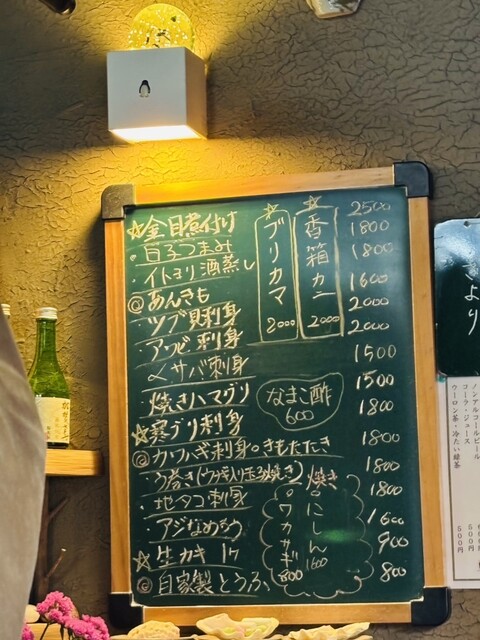 ☆金目煮付け 2500
・白子つまみ 1800
・イトヨリ酒蒸し 1800
◎あんきも 1600
・ツブ貝刺身 2000
・アワビ刺身 2000
〆サバ刺身 1500
・焼きハマグリ 1500
☆寒ブリ刺身 1800
◎カワハギ刺身。きもたたき 1800
・う巻き(ウナギ入り玉子焼き) 1800
・地タコ刺身 1800
・アジなめろう 1600
☆生カキ 1ケ 900
◎自家製とうふ 800
☆香箱カニ 2000
☆ブリカマ 2000
なまこ酢
600
焼き
。にしん 1600
。ワカサギ 800
より
ノンアルコールビール
コーラ・ジュース 500円
ウーロン茶・冷たい緑茶 500円